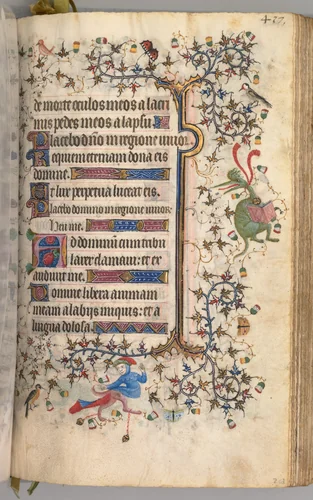 + 27.
de morte oculos meos a lacri
mis pedes meos a lapsu
Placebo dño in regione vivor
Requiem eternam dona eis
domine.
Et lux perpetua luceat eis.
Placebo domino in regione vivor
Ad dominum cum tribu
larer clamavi: et ex
audivit me.
Domine libera animam
meam a labijs iniquis: et a
lingua dolosa.